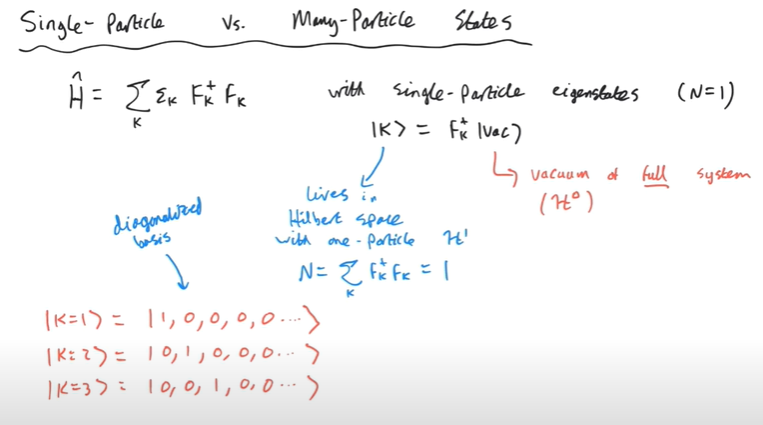 Single-Particle vs. Many-Particle States
Ĥ = ∑_K ε_K F_K^† F_K with single-particle eigenstates (N=1)
|K> = F_K^† |vac>
↳ vacuum of full system
(ℋ^0)
lives in
Hilbert space
with one-particle ℋ^1
N = ∑_K F_K^† F_K = 1
diagonalized
basis
|K=1> = |1, 0, 0, 0, 0 ...>
|K=2> = |0, 1, 0, 0, 0 ...>
|K=3> = |0, 0, 1, 0, 0 ...>